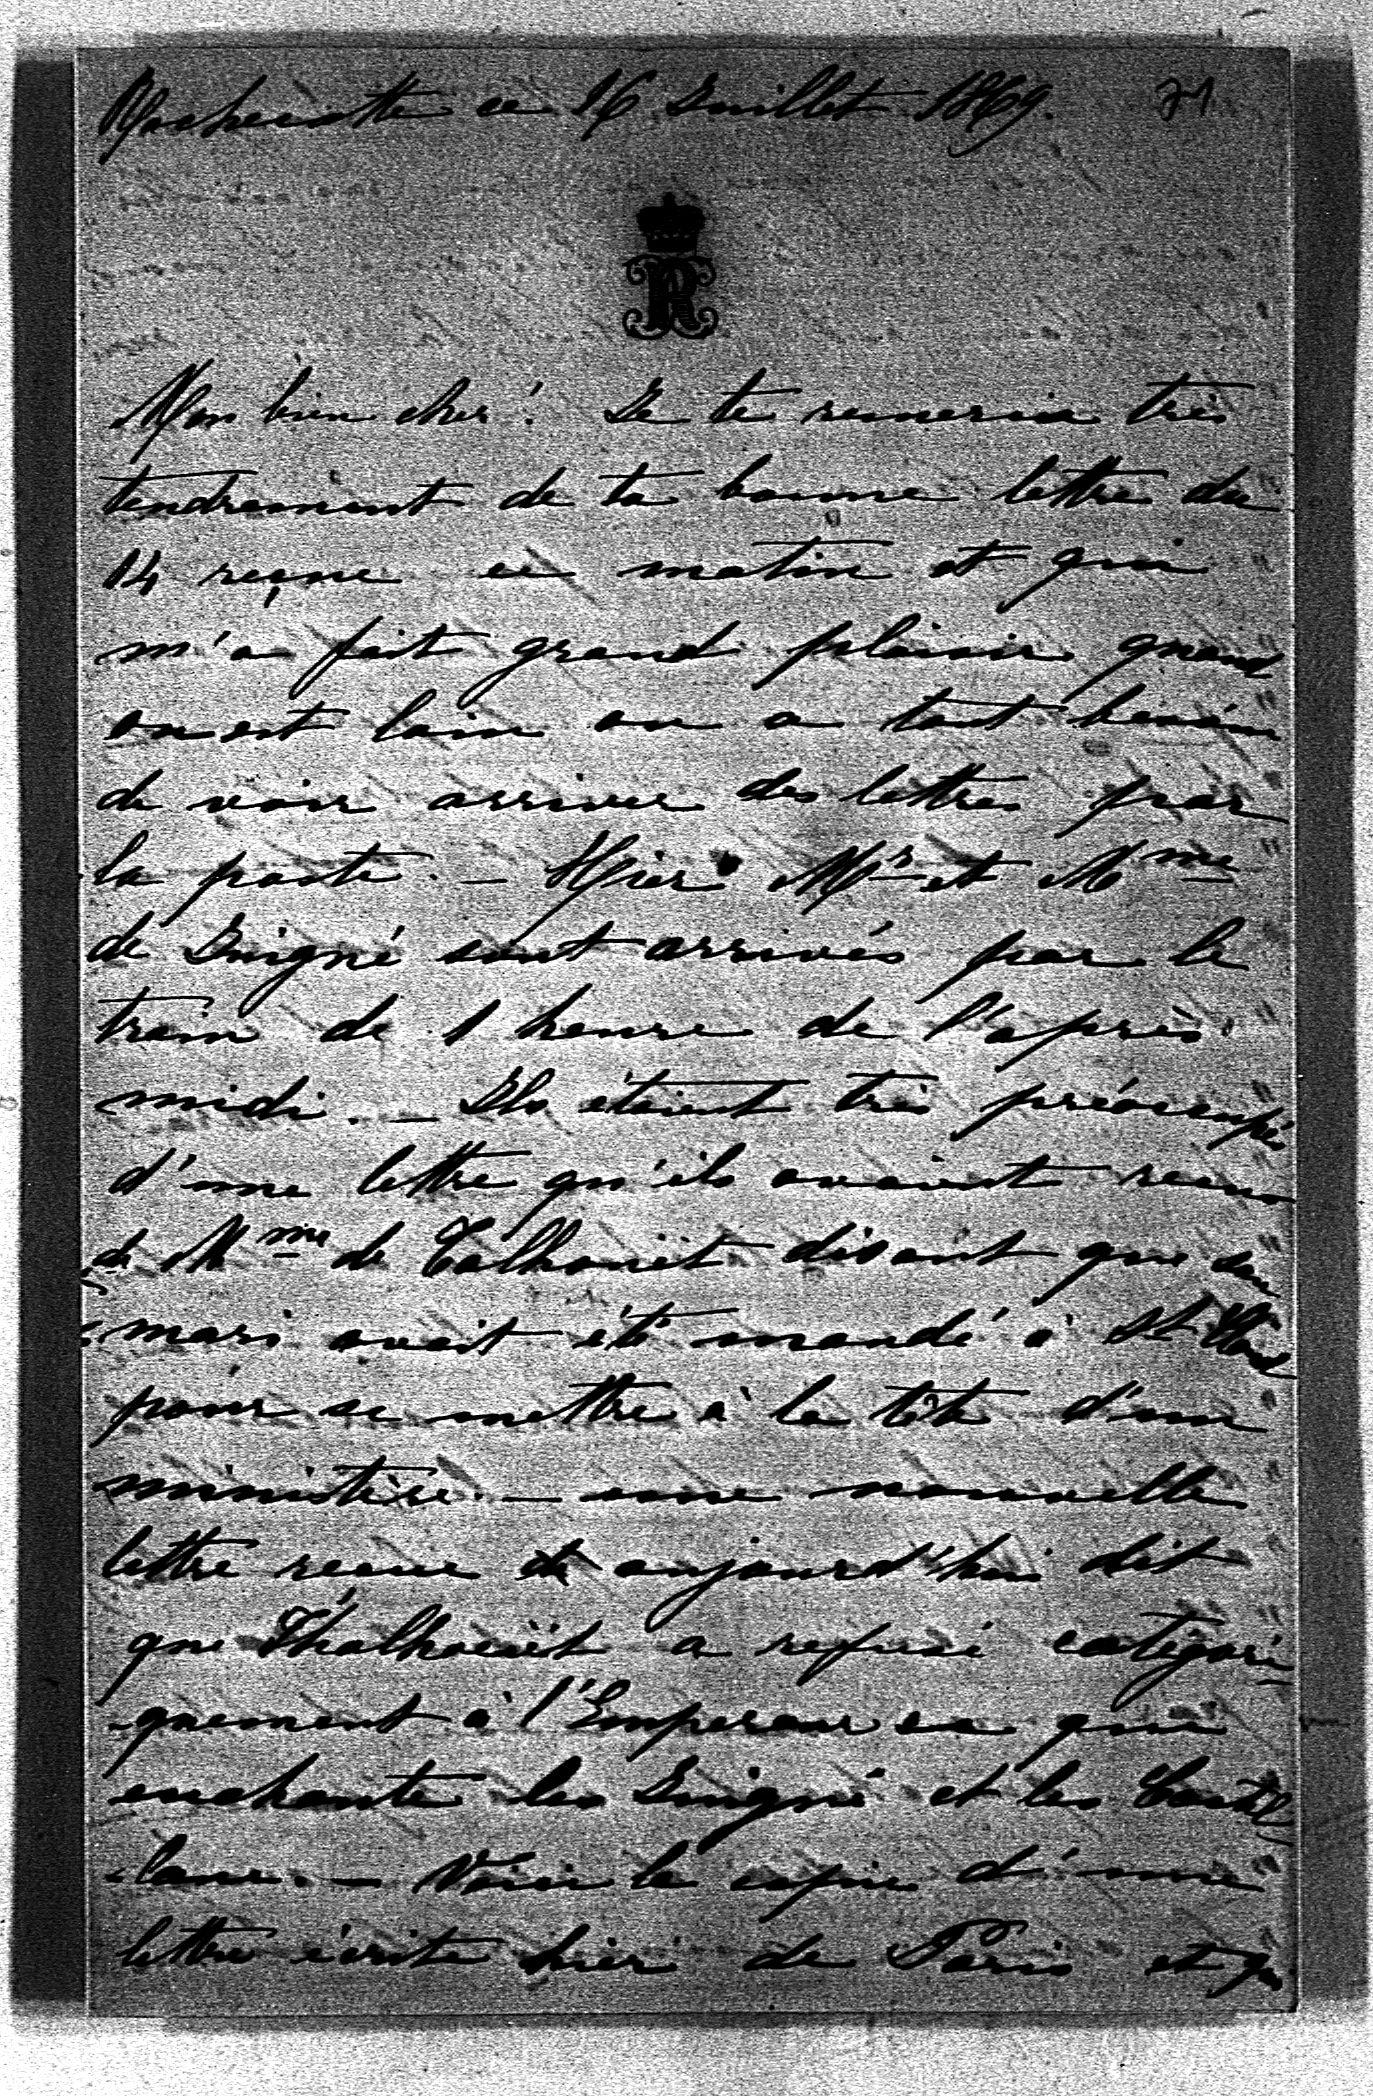 Rochecotte ce 16 Juillet 1869. 71
R
Mon bien cher! Je te remercie très
tendrement de ta bonne lettre du
14 reçue ce matin et qui
m'a fait grand plaisir quand
on est loin on a tant besoin
de voir arriver des lettres par
la poste. — Hier Mr et Mme
de Juigné sont arrivés par le
train de 1 heure de l'après
midi. — Ils étaient très préoccupés
d'une lettre qu'ils avaient recue
de Mme de Talhouët disant que son
mari avait été mandé à St Cloud
pour se mettre à la tête d'un
ministère. — une nouvelle
lettre recue aujourd'hui dit
que Thalhouët a refusé catégori
-quement à l'Empereur ce qui
enchante les Juigné et les Castel
-lane. — Voici la copie d'une
lettre écrite hier de Paris et qui